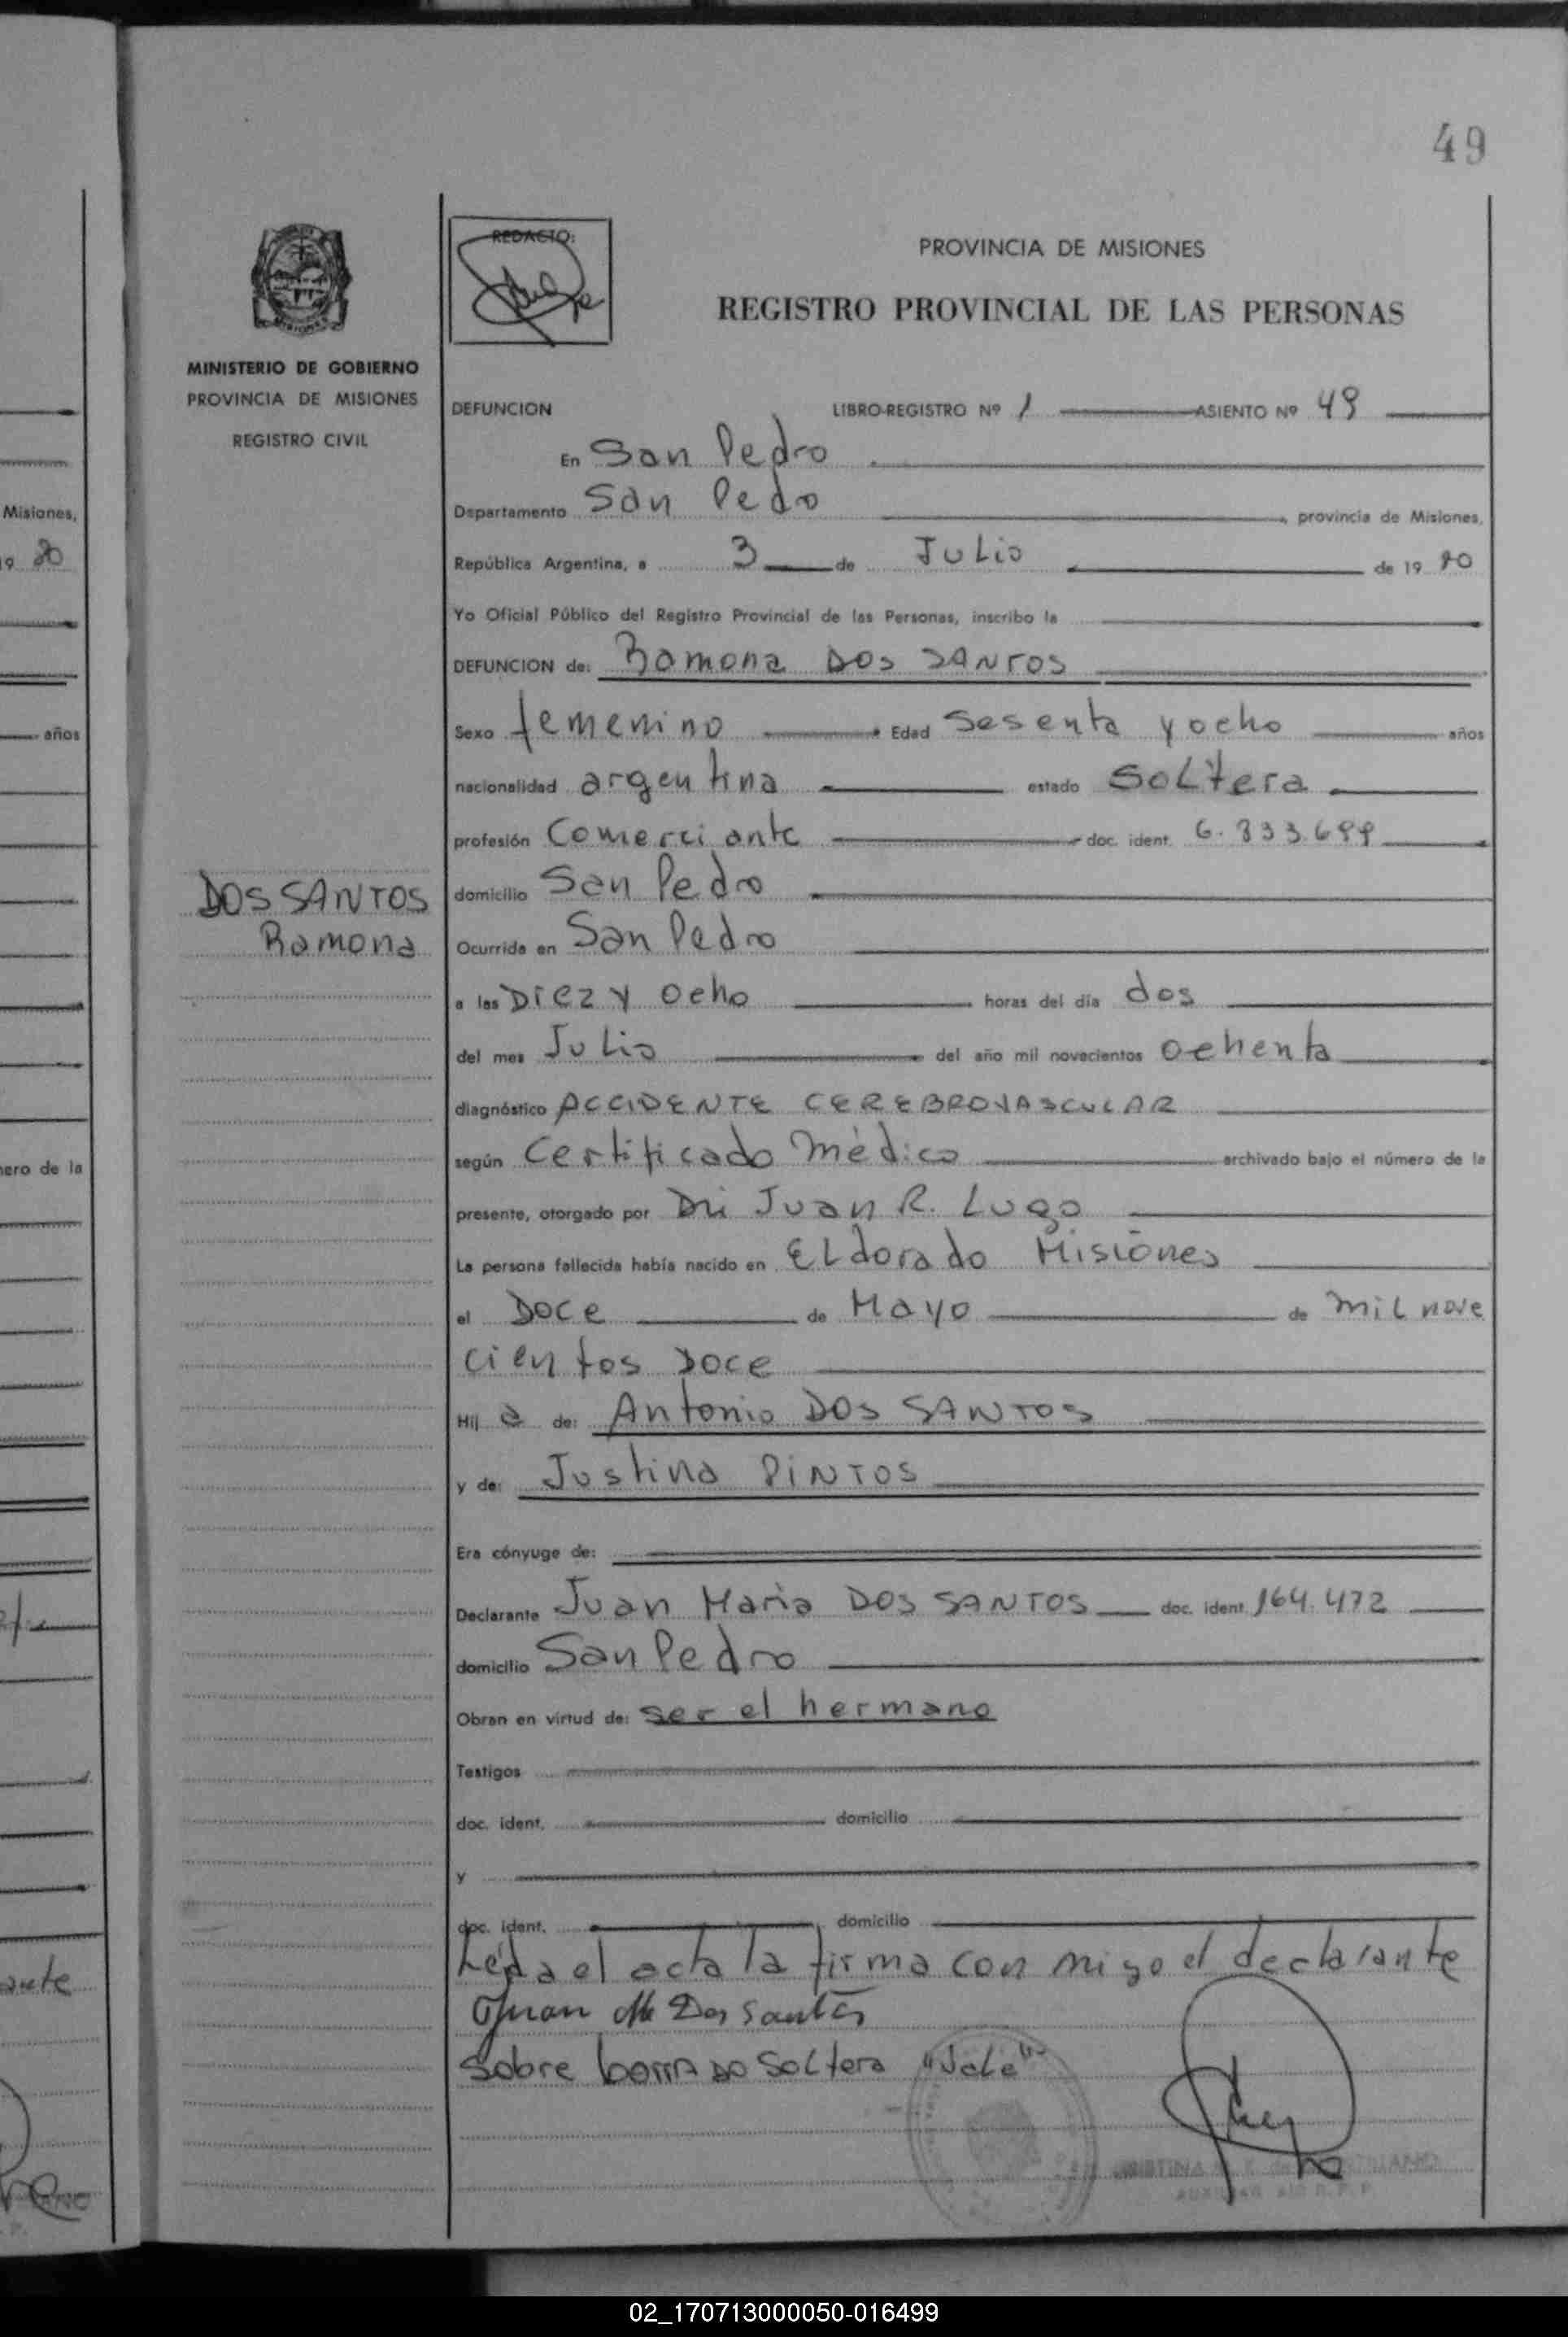 49
PROVINCIA DE MISIONES
REGISTRO PROVINCIAL DE LAS PERSONAS
REDACTO:
MINISTERIO DE GOBIERNO
PROVINCIA DE MISIONES
REGISTRO CIVIL
DOS SANTOS
Ramona
DEFUNCION LIBRO-REGISTRO Nº 1 ASIENTO Nº 49
En San Pedro
Departamento San Pedo , provincia de Misiones,
República Argentina, a 3 de Julio de 19 80
Yo Oficial Público del Registro Provincial de las Personas, inscribo la
DEFUNCION de: Ramona DOS SANTOS
Sexo femenino Edad Sesenta y ocho años
nacionalidad argentina estado SoLtera
profesión Comerciante doc. ident. 6.833.699
domicilio San Pedro
Ocurrida en San Pedro
a las Diez y ocho horas del día dos
del mes Julio del año mil novecientos ochenta
diagnóstico ACCIDENTE CEREBROVASCULAR
según Certificado Médico archivado bajo el número de la
presente, otorgado por Juan R. Lugo
La persona fallecida había nacido en ELdorado Misiones
el Doce de Mayo de mil nove
cientos Doce
Hij a de: Antonio DOS SANTOS
y de: Justina PINTOS
Era cónyuge de:
Declarante Juan Maria DOS SANTOS doc. ident. 164.472
domicilio San Pedro
Obran en virtud de: ser el hermano
Testigos
doc. ident. domicilio
y
doc. ident. domicilio
Leida el acta la firma con migo el declarante
Juan Ma Dos Santos
Sobre borrado Soltera "Vale"
Misiones,
19 80
años
nero de la
02_170713000050-016499